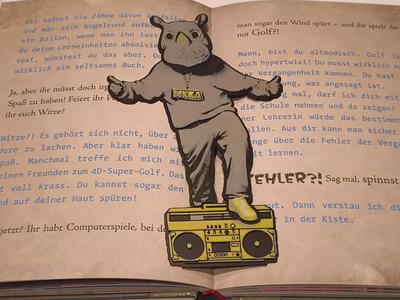 dir sofort die Zähne davon ausfallen
und man sich kugelrund aufbläst
ein Ballon, wenn man ihn isst
du deine Lerneinheiten absolvie
test, wüsstest du das aber. Du
wirklich ein seltsames Buch.
Ja, aber ihr müsst doch irg
Spaß zu haben! Feiert ihr P
ihr euch Witze?
Witze?! Es gehört sich nicht, über
dere zu lachen. Aber klar haben wi
Spaß. Manchmal treffe ich mich mi
einen Freunden zum 4D-Super-Golf. Das
t voll krass. Du kannst sogar den
nd auf deiner Haut spüren!
jetzt? Ihr habt Computerspiele, bei de
man sogar den Wind spürt – und ihr spielt da
mit Golf?!
Mann, bist du altmodisch. Golf is
doch hypertwixi! Du musst wirklich a
er Vergangenheit kommen. Du hast
ung, was angesagt ist.
ag, darf ich dich mit
die Schule nehmen und da zeigen?
er Lehrerin würde das bestimmt
llen. Aus dir kann man sicher
nge über die Fehler der Verga
it lernen.
FEHLER?! Sag mal, spinnst
ut. Dann verstau ich di
in der Kiste.